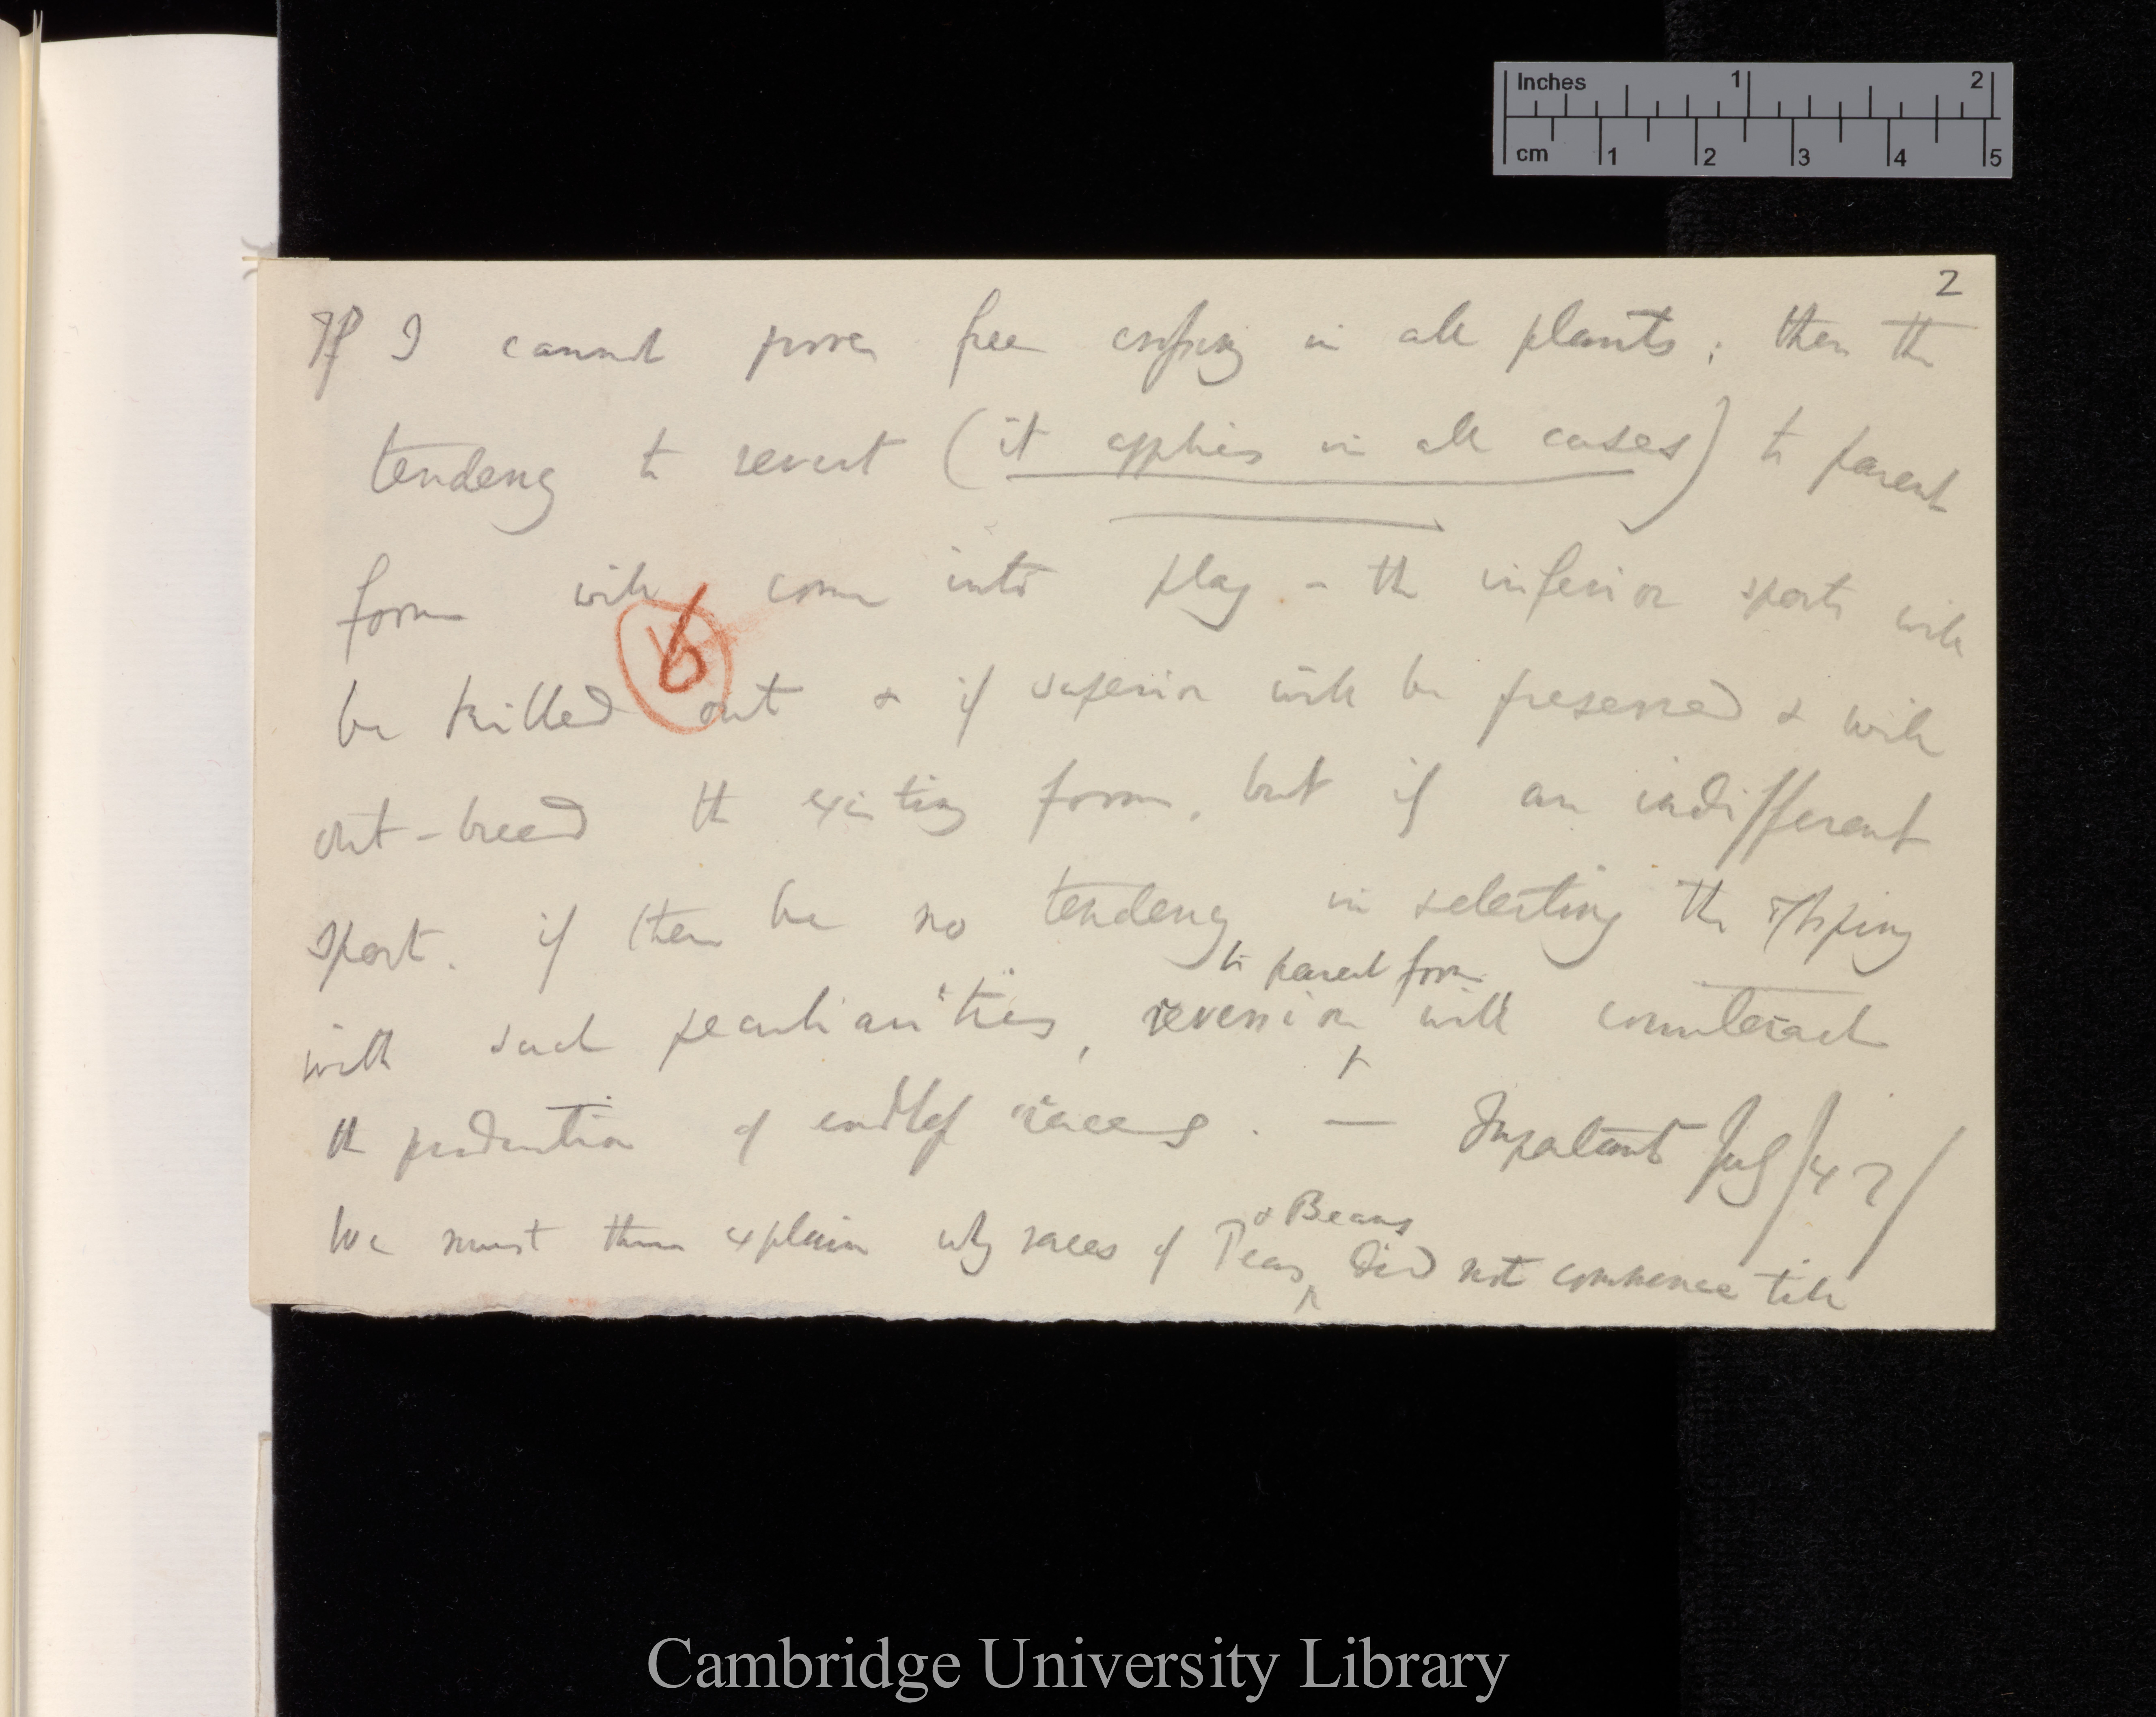 Inches 1 2
cm 1 2 3 4 5
2
If I cannot prove free crossing in all plants; then the
tendency to revert (it applies in all cases) to parent
form will come into play – the inferior sports will
6
be killed out & if superior will be preserved & will
out-breed the existing form, but if an indifferent
sport. if there be no tendency in selecting the offspring
to parent form
with such peculiarities, reversion will counteract
the production of endless races. — Important July/47/
& Beans
We must then explain why races of Peas did not commence till
Cambridge University Library